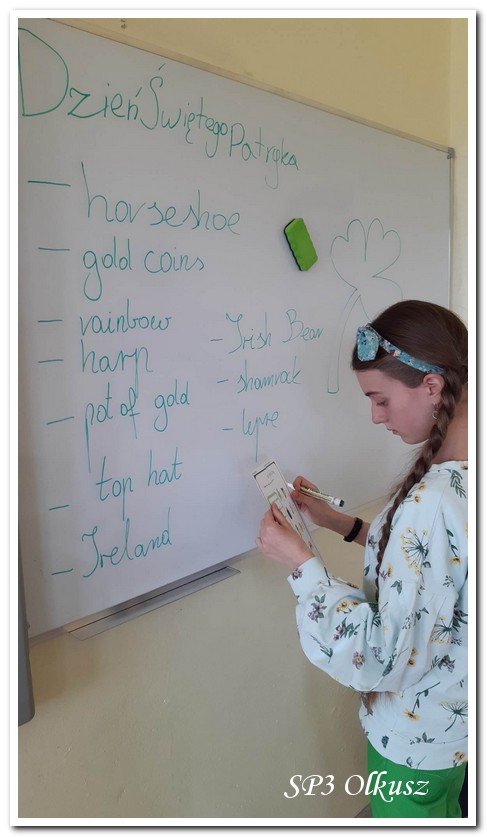 Dzień Świętego Patryka
– horseshoe
– gold coins
– rainbow
– harp
– pot of gold
– top hat
– Ireland
– Irish Bear
– shamrak
– lepre
SP3 Olkusz